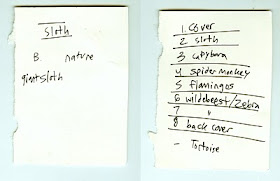 sloth
B nature
giant sloth
1. cover
2 sloth
3 capybara
4 spider monkey
5 flamingos
6 wildebeest/zebra
7 "
8 back cover
- Tortoise